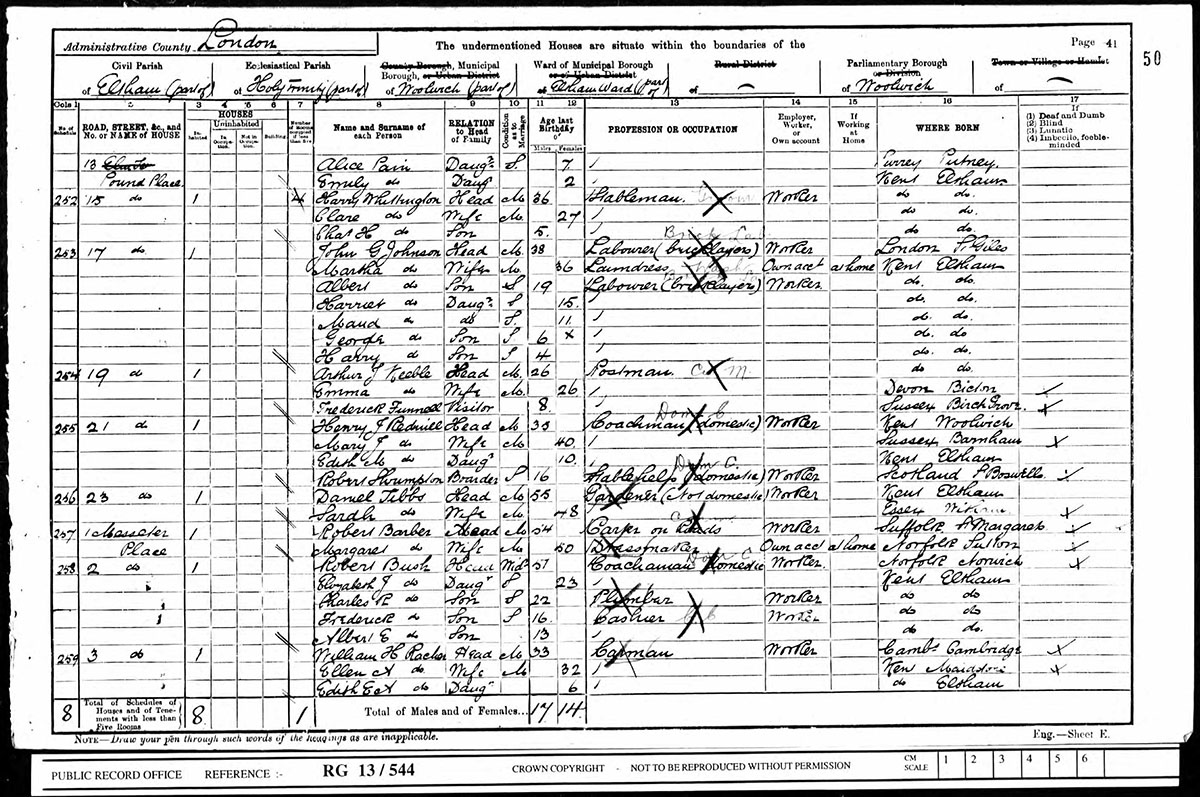 Administrative County London
The undermentioned Houses are situate within the boundaries of the
Page 41
50
Civil Parish
of Eltham (part of)
Ecclesiastical Parish
of Holy Trinity (part of)
County Borough, Municipal
Borough, or Urban District
of Woolwich (part of)
Ward of Municipal Borough
or of Urban District
of Eltham Ward (part of)
Rural District
of —
Parliamentary Borough
or Division
of Woolwich
Town or Village or Hamlet
of —
Cols 1 2 3 4 5 6 7 8 9 10 11 12 13 14 15 16 17
No. of Schedule
ROAD, STREET, &c., and No. or NAME of HOUSE
HOUSES
Inhabited
Uninhabited
In Occupation.
Not in Occupation.
Building
Number of Rooms occupied if less than five
Name and Surname of each Person
RELATION to Head of Family
Condition as to Marriage
Age last Birthday of
Males Females
PROFESSION OR OCCUPATION
Employer, Worker, or Own account
If Working at Home
WHERE BORN
If
(1) Deaf and Dumb
(2) Blind
(3) Lunatic
(4) Imbecile, feeble-minded
13 Alice Pain Daugr. S 7 Surrey Putney
Pound Place Emily do Daugr 2 Kent Eltham
252 15 do 1 4 Harry Whittington Head M 36 Stableman Groom Worker do. do.
Clare do Wife M. 27 do. do.
Chas H do Son 5. do. do.
253 17 do. 1 John G Johnson Head M 38 Labourer (bricklayers) Worker London St Giles
Martha do Wife M 36 Laundress Own acct at home Kent Eltham
Albert do Son S 19 Labourer (bricklayers) Worker do. do.
Harriet do Daugr. S 15. do. do.
Maud do do S. 11. do. do.
George do Son S 6 x do. do.
Harry do Son S 4 do. do.
254 19 do 1 Arthur J Keeble Head M. 26 Postman do. do.
Emma do Wife M. 26 Devon Bicton
Frederick Funnell Visitor 8. Sussex Birch Grove
255 21 do 1 Henry J Rednill Head M 33 Coachman (domestic) Dom C Worker Kent Woolwich
Mary J do Wife M 40. Sussex Barnham
Edith M do Daugr 10. Kent Eltham
Robert Shrumpton Boarder S 16 Stablehelp (domestic) Dom C. Worker Scotland St Boswells
256 23 do 1 Daniel Tibbs Head M 55 Gardener (Not domestic) Worker Kent Eltham
Sarah do Wife M. 48 Essex
257 1 Place 1 Robert Barber Head M 54 Carter on Worker Suffolk St Margaret
Margaret do Wife M 50 Dressmaker Own acct at home Norfolk Sutton
258 2 do 1 Robert Bush Head Widr 57 Coachaman domestic Dom C Worker. Norfolk Norwich
Elizabeth J do Daugr S 23 Kent Eltham
Charles R do Son S 22 Plumber Worker do do
Frederick do Son S 16. Cashier Worker do do
Albert E do Son 13 do. do.
259 3 do 1 William H Racher Head M 33 Carman Worker Cambs Cambridge
Ellen A do Wife M 32 Ken Maidstone
Edith E A do Daugr 6 do Eltham
8 Total of Schedules of Houses and of Tenements with less than Five Rooms 8 1 Total of Males and of Females... 17 14
NOTE—Draw your pen through such words of the headings as are inapplicable.
Eng.—Sheet E.
PUBLIC RECORD OFFICE REFERENCE :- RG 13/544 CROWN COPYRIGHT - NOT TO BE REPRODUCED WITHOUT PERMISSION CM SCALE 1 2 3 4 5 6